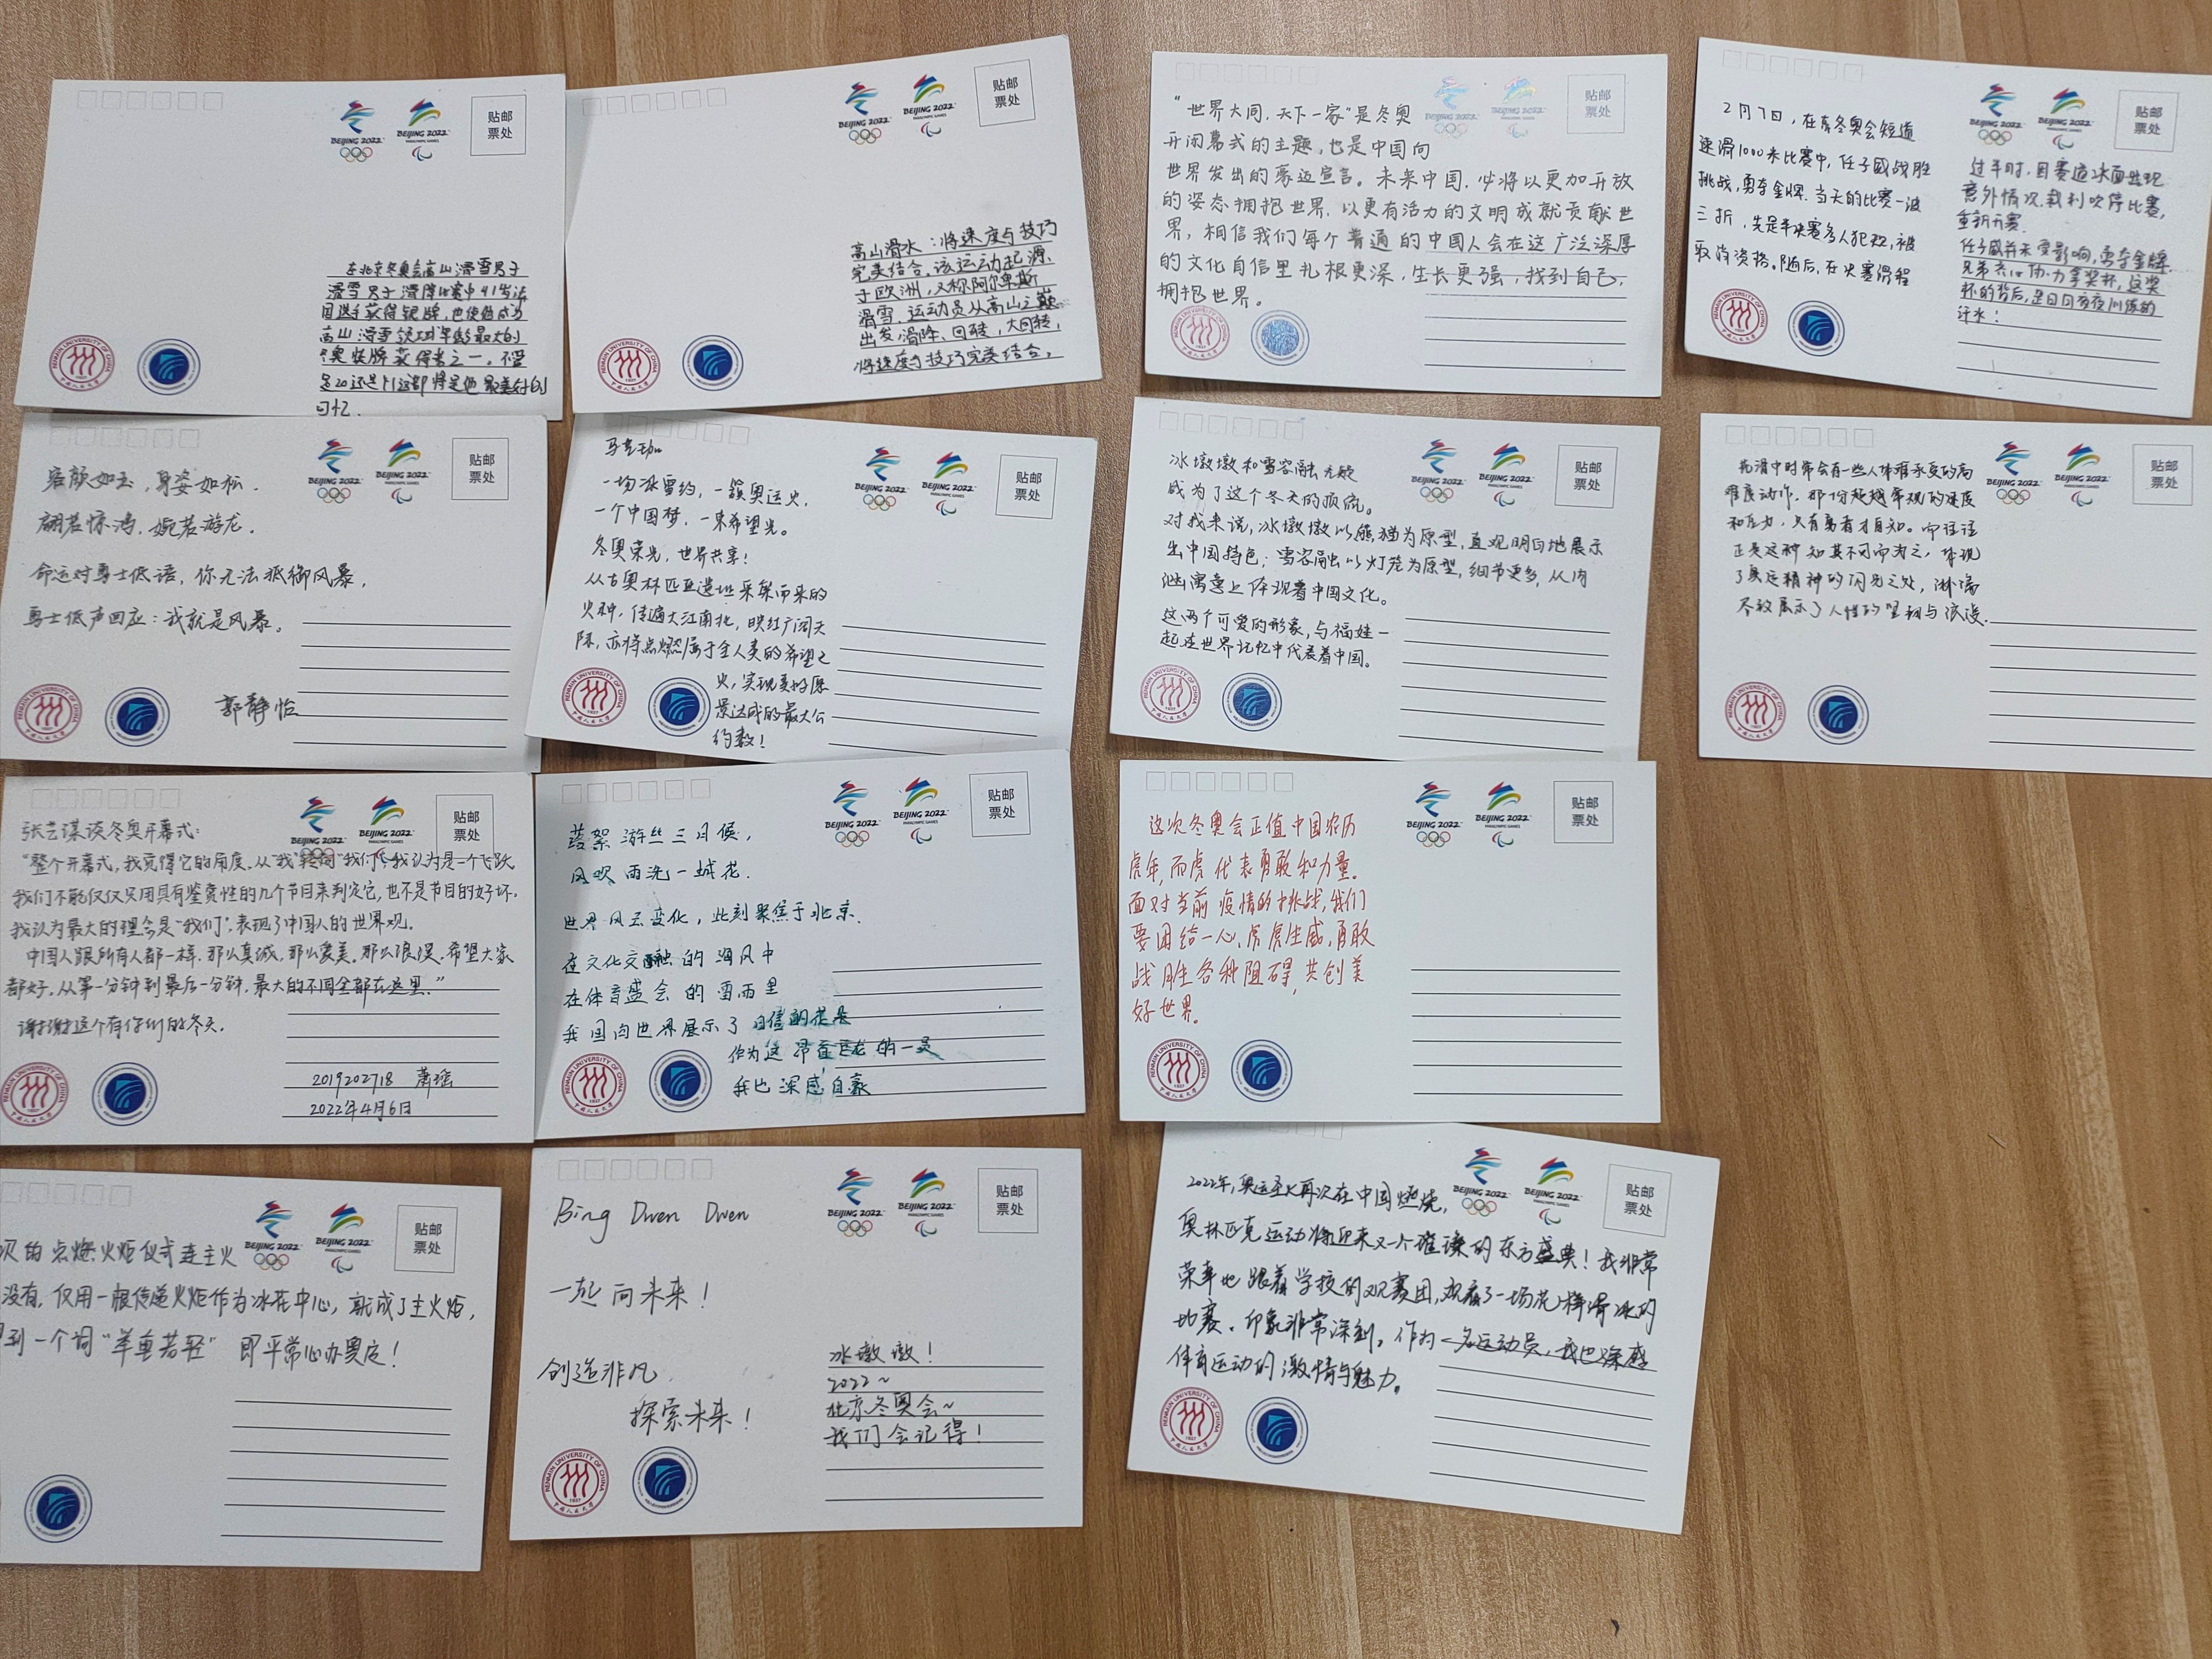 BEIJING 2022
BEIJING 2022
PARALYMPIC GAMES
贴邮
票处
在北京冬奥会高山滑雪男子
滑雪男子滑降比赛中41岁法
国选手获得银牌,也使他成为
高山滑雪领域年龄最大的
冬奥奖牌获得者之一。不管
是20还是41这都将是他最美好的
回忆.
RENMIN UNIVERSITY OF CHINA
1937
中国人民大学
BEIJING 2022
BEIJING 2022
PARALYMPIC GAMES
贴邮
票处
高山滑水:将速度与技巧
完美结合,该运动起源
于欧洲,又称阿尔卑斯
滑雪.运动员从高山之巅
出发,滑降、回转,大回转,
将速度与技巧完美结合,
RENMIN UNIVERSITY OF CHINA
1937
中国人民大学
贴邮
票处
BEIJING 2022
“世界大同,天下一家”是冬奥
开闭幕式的主题,也是中国向
世界发出的豪迈宣言。未来中国,必将以更加开放
的姿态拥抱世界,以更有活力的文明成就贡献世
界,相信我们每个普通的中国人会在这广泛深厚
的文化自信里扎根更深,生长更强,找到自己,
拥抱世界。
RENMIN UNIVERSITY OF CHINA
1937
中国人民大学
BEIJING 2022
BEIJING 2022
贴邮
票处
2月7日,在京冬奥会短道
速滑1000米比赛中,任子威战胜
挑战,勇夺金牌.当天的比赛一波
三折,先是半决赛多人犯规,被
取消资格。随后,在决赛滑程
过半时,因赛道冰面出现
意外情况,裁判吹停比赛,
重新开赛.
任子威并未受影响,勇夺金牌.
兄弟齐心协力拿奖杯,这奖
杯的背后,是日日夜夜训练的
汗水!
RENMIN UNIVERSITY OF CHINA
中国人民大学
BEIJING 2022
BEIJING 2022
PARALYMPIC GAMES
贴邮
票处
容颜如玉,身姿如松.
翩若惊鸿,婉若游龙.
命运对勇士低语,你无法抵御风暴,
勇士低声回应:我就是风暴。
郭静怡
RENMIN UNIVERSITY OF CHINA
中国人民大学
BEIJING 2022
BEIJING 2022
PARALYMPIC GAMES
贴邮
票处
一场冰雪约,一簇奥运火,
一个中国梦,一束希望光。
冬奥荣光,世界共享!
从古奥林匹亚遗址采集而来的
火种,传遍大江南北,映红广阔天
际,亦将点燃属于全人类的希望之
火,实现美好愿
景达成的最大公
约数!
RENMIN UNIVERSITY OF CHINA
1937
中国人民大学
BEIJING 2022
BEIJING 2022
PARALYMPIC GAMES
贴邮
票处
冰墩墩和雪容融无疑
成为了这个冬天的顶流。
对我来说,冰墩墩以熊猫为原型,直观明白地展示
出中国特色;雪容融以灯笼为原型,细节更多,从内
涵寓意上体现着中国文化。
这两个可爱的形象,与福娃一
起在世界记忆中代表着中国。
RENMIN UNIVERSITY OF CHINA
1937
中国人民大学
BEIJING 2022
BEIJING 2022
PARALYMPIC GAMES
贴邮
票处
花滑中时常会有一些人体难承受的高
难度动作.那份超越常规的速度
和压力,只有勇者才自知。而往往
正是这种知其不可而为之,体现
了奥运精神的闪光之处,淋漓
尽致展示了人性的坚韧与浪漫.
RENMIN UNIVERSITY OF CHINA
中国人民大学
BEIJING 2022
BEIJING 2022
贴邮
票处
张艺谋谈冬奥开幕式:
“整个开幕式,我觉得它的角度,从“我”转向“我们”,我认为是一个飞跃
我们不能仅仅只用具有鉴赏性的几个节目来判定它,也不是节目的好坏.
我认为最大的理念是“我们”,表现了中国人的世界观.
中国人跟所有人都一样,那么真诚,那么爱美,那么浪漫,希望大家
都好。从第一分钟到最后一分钟,最大的不同全部在这里.”
谢谢这个有你们的冬天.
2019202718 萧瑶
2022年4月6日
RENMIN UNIVERSITY OF CHINA
中国人民大学
BEIJING 2022
BEIJING 2022
PARALYMPIC GAMES
贴邮
票处
游丝三月候,
风吹雨洗一城花.
世界风云变化,此刻聚焦于北京.
在文化交融的海风中
在体育盛会的雪雨里
我国向世界展示了自信的
作为这 巨龙的一员
我也深感自豪
RENMIN UNIVERSITY OF CHINA
1937
中国人民大学
BEIJING 2022
BEIJING 2022
PARALYMPIC GAMES
贴邮
票处
这次冬奥会正值中国农历
虎年,而虎代表勇敢和力量.
面对当前疫情的挑战,我们
要团结一心,虎虎生威,勇敢
战胜各种阻碍,共创美
好世界。
RENMIN UNIVERSITY OF CHINA
1937
中国人民大学
BEIJING 2022
BEIJING 2022
PARALYMPIC GAMES
贴邮
票处
次的点燃火炬仪式连主火
没有,仅用一根传递火炬作为冰花中心,就成了主火炬,
到一个词“举重若轻” 即平常心办奥运!
BEIJING 2022
BEIJING 2022
PARALYMPIC GAMES
贴邮
票处
Bing Dwen Dwen
一起向未来!
创造非凡,
探索未来!
冰墩墩!
2022~
北京冬奥会~
我们会记得!
RENMIN UNIVERSITY OF CHINA
1937
中国人民大学
BEIJING 2022
BEIJING 2022
PARALYMPIC GAMES
贴邮
票处
2022年,奥运圣火再次在中国燃烧,
奥林匹克运动将迎来又一个璀璨的东方盛典!我非常
荣幸地跟着学校的观赛团,观看了一场花样滑冰的
比赛,印象非常深刻。作为一名运动员,我也深感
体育运动的激情与魅力。
RENMIN UNIVERSITY OF CHINA
1937
中国人民大学